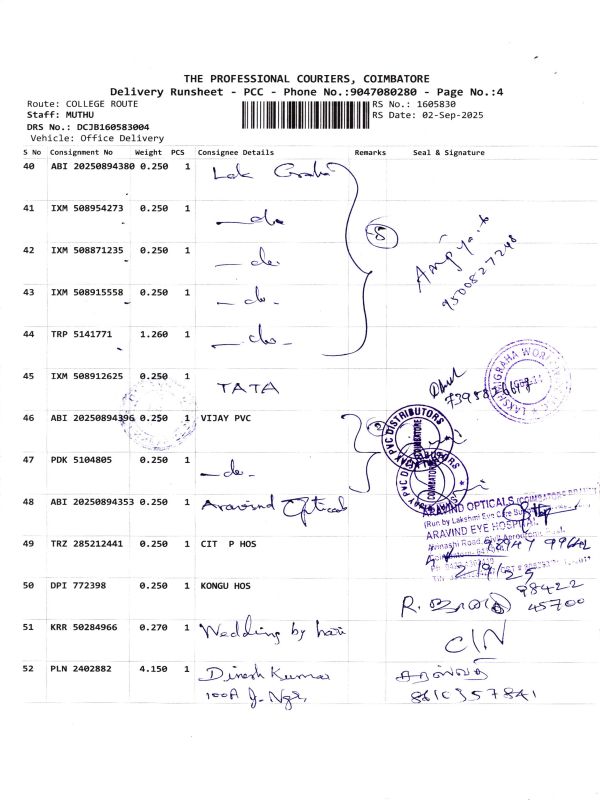 THE PROFESSIONAL COURIERS, COIMBATORE
Delivery Runsheet - PCC - Phone No.:9047080280 - Page No.:4
Route: COLLEGE ROUTE RS No.: 1605830
Staff: MUTHU RS Date: 02-Sep-2025
DRS No.: DCJB160583004
Vehicle: Office Delivery
S No Consignment No Weight PCS Consignee Details Remarks Seal & Signature
40 ABI 20250894380 0.250 1
41 IXM 508954273 0.250 1 -do-
42 IXM 508871235 0.250 1 -do-
43 IXM 508915558 0.250 1 -do-
44 TRP 5141771 1.260 1 -do-
5
9500827248
45 IXM 508912625 0.250 1 TATA
46 ABI 20250894396 0.250 1 VIJAY PVC
47 PDK 5104805 0.250 1 -do-
2
VIJAY PVC DISTRIBUTORS
COIMBATORE
48 ABI 20250894353 0.250 1 Aravind Optical
ARAVIND OPTICALS (COIMBATORE BRANCH)
(Run by Lakshmi Eye Care
ARAVIND EYE HOSPITAL
Avinashi Road, Civil Aerodrome Post,
49 TRZ 285212441 0.250 1 CIT P HOS
2/9/25
50 DPI 772398 0.250 1 KONGU HOS
98422
45700
51 KRR 50284966 0.270 1 Wedding by hari
52 PLN 2402882 4.150 1 Dinesh Kumar
100A J. Ngr,
8610357841